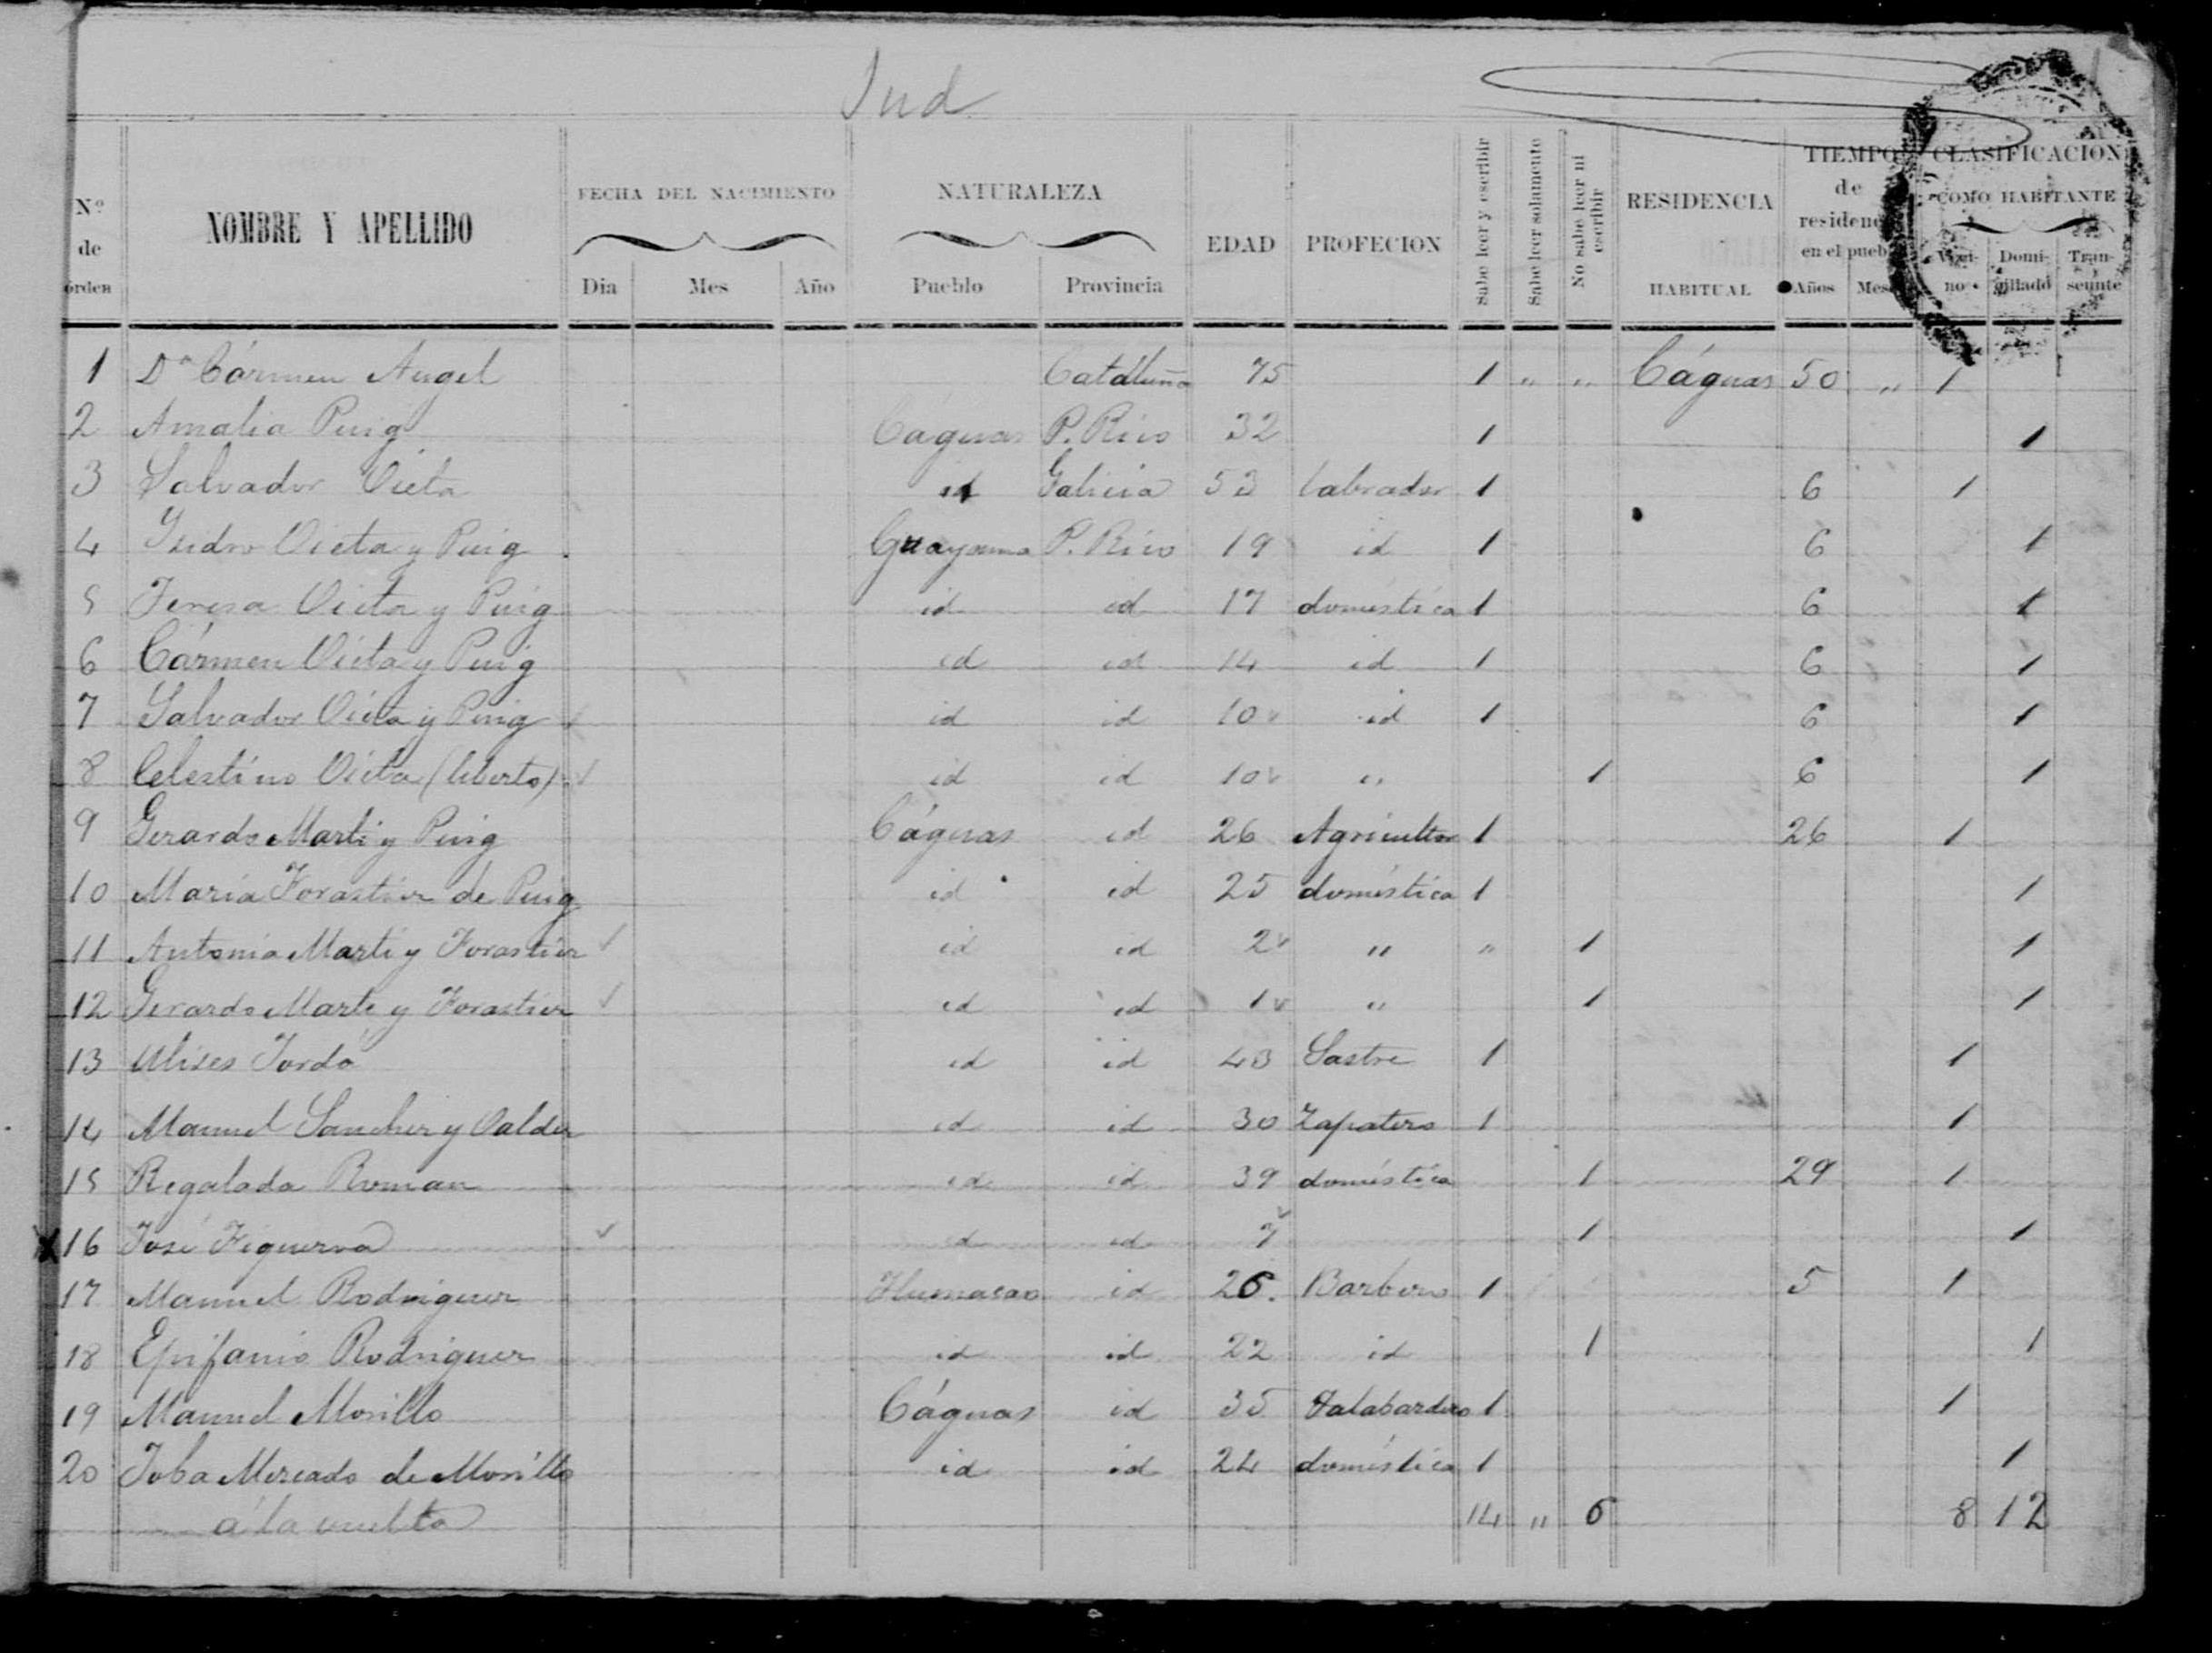 Sud
Nº de orden NOMBRE Y APELLIDO FECHA DEL NACIMIENTO Dia Mes Año NATURALEZA Pueblo Provincia EDAD PROFECION Sabe leer y escribir Sabe leer solamente No sabe leer ni escribir RESIDENCIA HABITUAL TIEMPO de residenc en el pueb Años Mes CLASIFICACION COMO HABITANTE Veci-no Domi-ciliado Tran-seunte
1 Dª Cármen Angel Cataluña 75 1 " " Cáguas 50 " 1
2 Amalia Puig Cáguas P. Rico 32 1 1
3 Salvador Vieta id Galicia 53 labrador 1 6 1
4 Isidro Vieta y Puig Guayama P. Rico 19 id 1 6 1
5 Teresa Vieta y Puig id id 17 doméstica 1 6 1
6 Cármen Vieta y Puig id id 14 id 1 6 1
7 Salvador Vieta y Puig id id 10 id 1 6 1
8 Celestino Vieta (liberto) id id 10 " 1 6 1
9 Gerardo Marti y Puig Cáguas id 26 Agricultor 1 26 1
10 Maria Forastier de Puig id id 25 doméstica 1 1
11 Antonia Marti y Forastier id id 2 " " 1 1
12 Gerardo Marti y Forastier id id 1 " 1 1
13 Ulises Jordá id id 43 Sastre 1 1
14 Manuel Sanchez y Valdez id id 30 Zapatero 1 1
15 Regalada Roman id id 39 doméstica 1 29 1
16 José Figueroa id id 7 1 1
17 Manuel Rodriguez Humacao id 26. Barbero 1 5 1
18 Epifanio Rodriguez id id 22 id 1 1
19 Manuel Morillo Cáguas id 35 Talabardero 1 1
20 Toba Mercado de Morillo id id 24 doméstica 1 1
á la vuelta 14 " 6 8 12